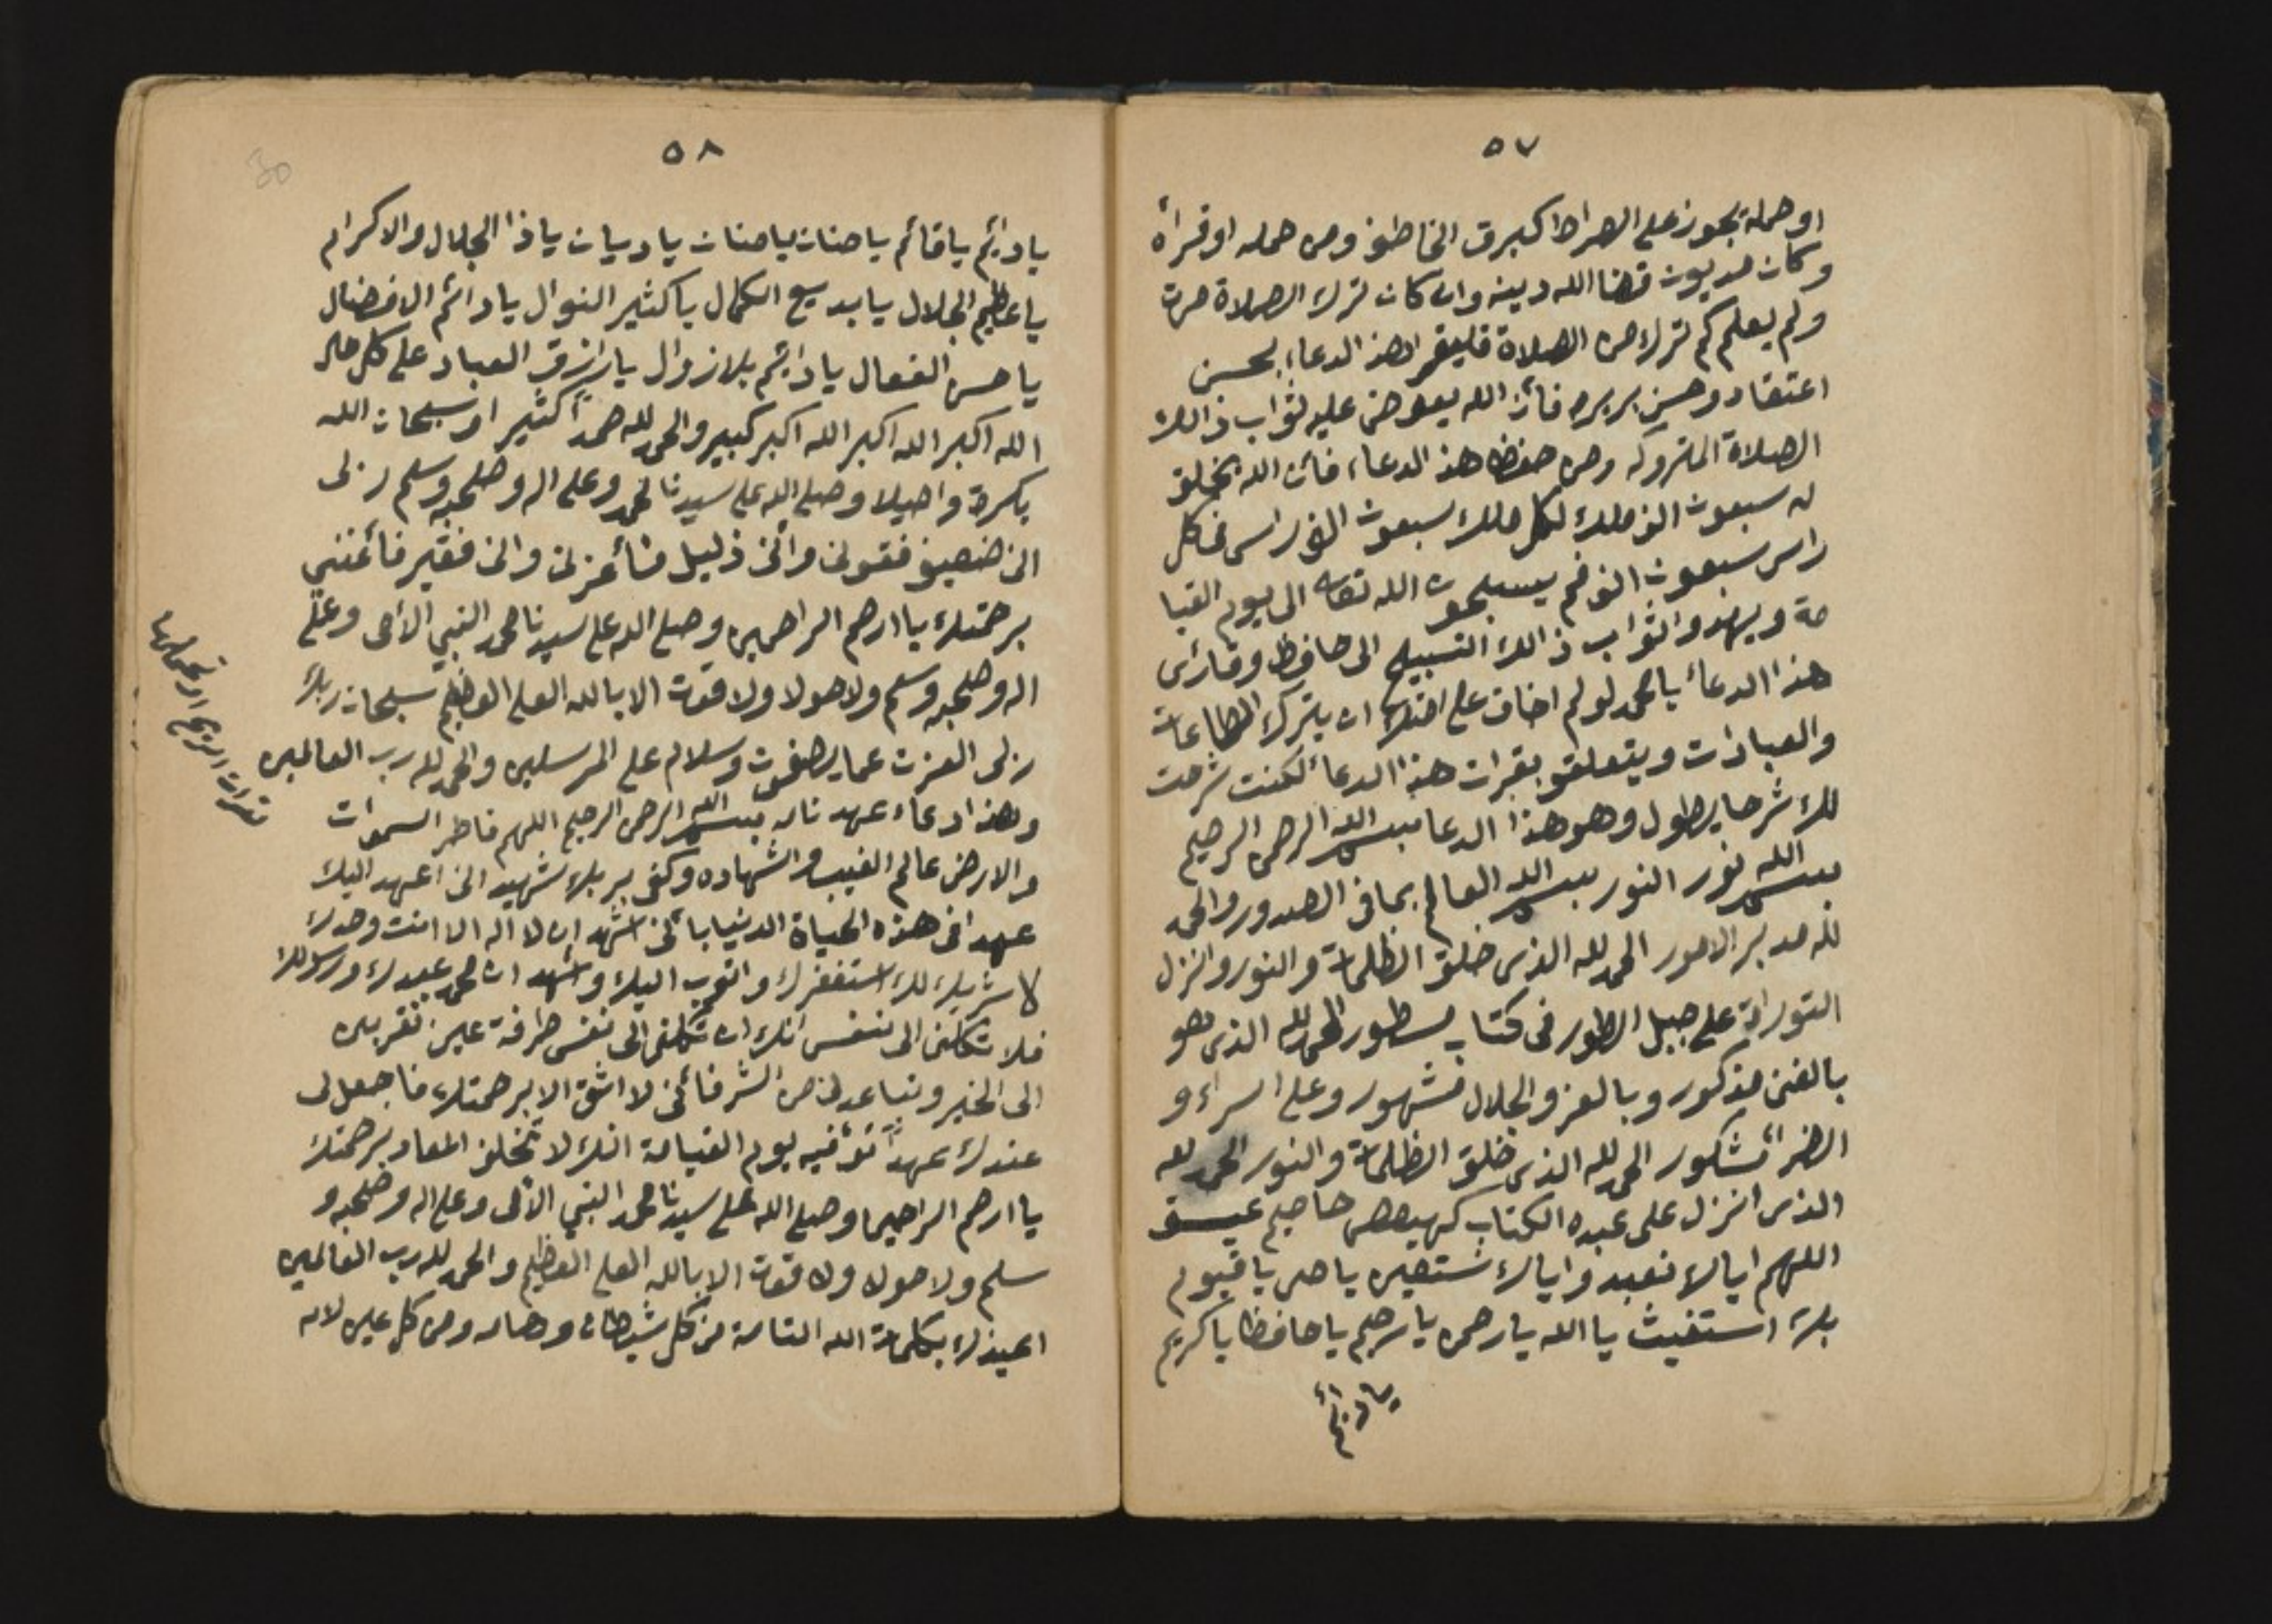 ٥٧
او حمله يجوز على الصراط كبرق الخاطف ومن حمله او قراه
وكان مديون قضا الله دينه وان كان ترك الصلاة مرت
ولم يعلم كم ترك من الصلاة فليقر اهذ الدعاء بحسن
اعتقاد وحسن بريره فأن الله يعوض عليه ثواب ذالك
الصلاة المتروكه ومن حفظ هذ الدعاء فأن الله يخلق
له سبعون الف ملك لكل ملك سبعون الف راس في كل
راس سبعون الف فم يسبحون الله تعالى الى يوم القيا
مة ويهدو اثواب ذالك التسبيح الى حافظ وقارئ
هذا الدعأ يا محمد لو لم اخاف على امتك ان يترك الطاعات
والعبادات ويتعلقو بقرات هذا الدعأ لكنت شرحت
لك شرحا يطول وهو هذا الدعا بسم الله الرحمن الرحيم
بسم الله نور النور بسم الله العالم بما فى الصدور والحمد
لله مدبر الامور الحمد لله الذى خلق الظلمات والنور وانزل
التوراة على جبل الطور فى كتاب مسطور الحمد لله الذى هو
بالغنى مذكور وبالعز والجلال مشهور وعلى السراء و
الضرأ مشكور الحمد لله الذى خلق الظلمات والنور الحمد لله
الذى انزل على عبده الكتاب كهيعص حاميم عسق
اللهم اياك نعبد واياك نستعين يا حى يا قيوم
بك استغيث يا الله يا رحمن يا رحيم يا حافظ يا كريم
يا دائم
٥٨
يا دائم يا قائم يا حنان يا منان يا ديان يا ذا الجلال والاكرام
يا عظيم الجلال يا بديع الكمال يا كثير النوال يا دائم الافضال
يا حسن الفعال يا دائم بلا زوال يا رازق العباد على كل حال
الله اكبر الله اكبر الله اكبر كبير والحمد لله حمدًا كثير او سبحان الله
بكرة واصيلا وصلى الله على سيدنا محمد وعلى اله وصحبه وسلم ربى
انى ضعيف فقونى وأنى ذليل فأعزنى وانى فقير فأغننى
برحمتك يا ارحم الراحمين وصلى الله على سيدنا محمد النبي الأمى وعلى
اله وصحبه وسلم ولا حولا ولا قوت الا بالله العلى العظيم سبحان ربك
ربى العزت عما يصفون وسلام على المرسلين والحمد لله رب العالمين
وهذ ادعاء عهد نامه بسم الله الرحمن الرحيم اللهم فاطر السموات
والارض عالم الغيب والشهاده وكفى بربك شهيد انى اعهد اليك
عهد افى هذه الحياة الدنيا بأنى اشهد ان لا اله الا انت وحدك
لا شريك لك استغفرك واتوب اليك واشهد ان محمد عبدك ورسولك
فلا تكلنى الى نفسى انك ان تكلنى الى نفسى طرفة عين تقربنى
الى الخير وتباعدنى من الشر فأنى لا اثق الا برحمتك فاجعل لى
عندك عهداً توفيه يوم القيامة انك لا تخلف المعاد برحمتك
يا ارحم الراحيما وصلى الله على سيدنا محمد النبي الأمى وعلى اله وصحبه و
سلم ولا حول ولا قوت الا بالله العلى العظيم والحمد لله رب العالمين
اعيذك بكلمات الله التامة من كل شيطان وهامه ومن كل عين لامه
30